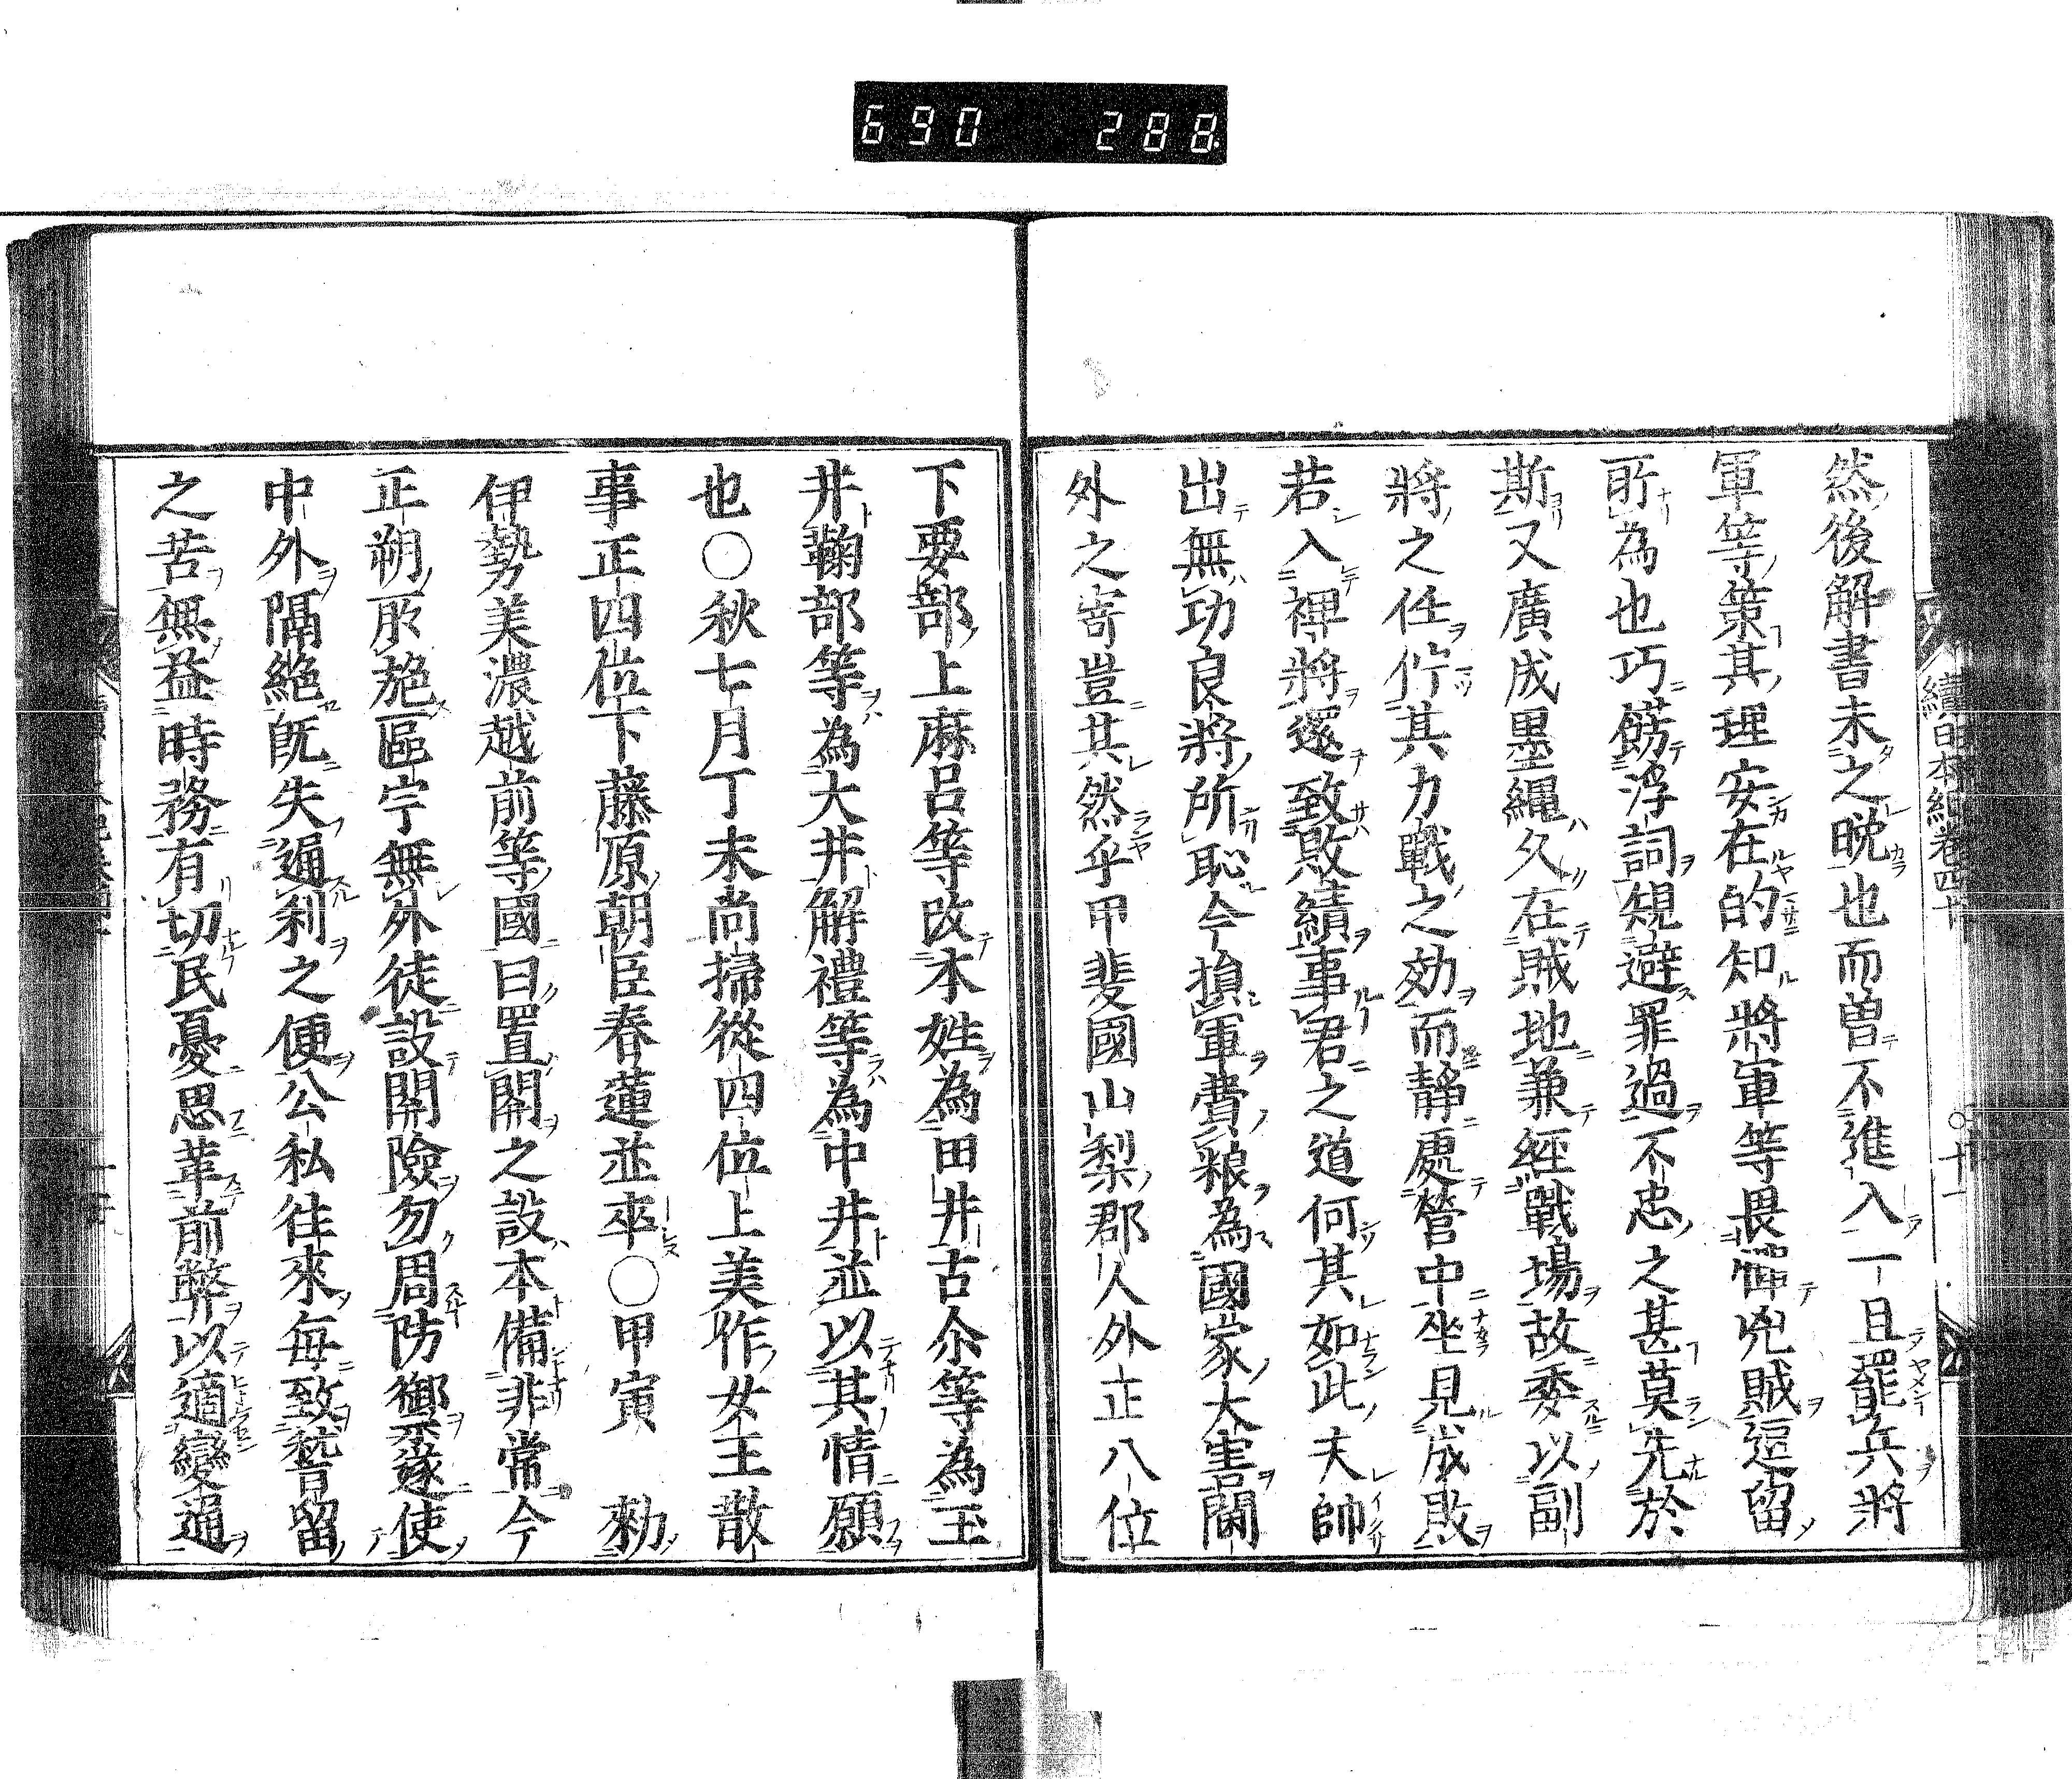 690 288
續日本紀卷四十 ○十一
然後解書未之晩也而曽不進入一旦罷兵將
軍等策其理安在的知將軍等畏憚兇賊逗留
所為也巧餝浮詞規避罪過不忠之甚莫先於
斯又廣成墨縄久在賊地兼經戰場故委以副
將之任佇其力戰之効而靜處營中坐見成敗
若入裨將還致敗績事君之道何其如此夫師
出無功良將所恥今損軍費粮為國家大害閫
外之寄豈其然乎甲斐國山梨郡人外正八位
下要部上麻呂等改本姓為田井古尒等為玉
井鞠部等為大井解禮等為中井並以其情願
也○秋七月丁未尚掃從四位上美作女王散
事正四位下藤原朝臣春蓮並卒○甲寅 勑
伊勢美濃越前等國曰置関之設本備非常今
正朔所施區宇無外徒設関險勿周防禦遂使
中外隔絶旣失通利之便公私徃來毎致稽留
之苦無益時務有切民憂思革前弊以適變通